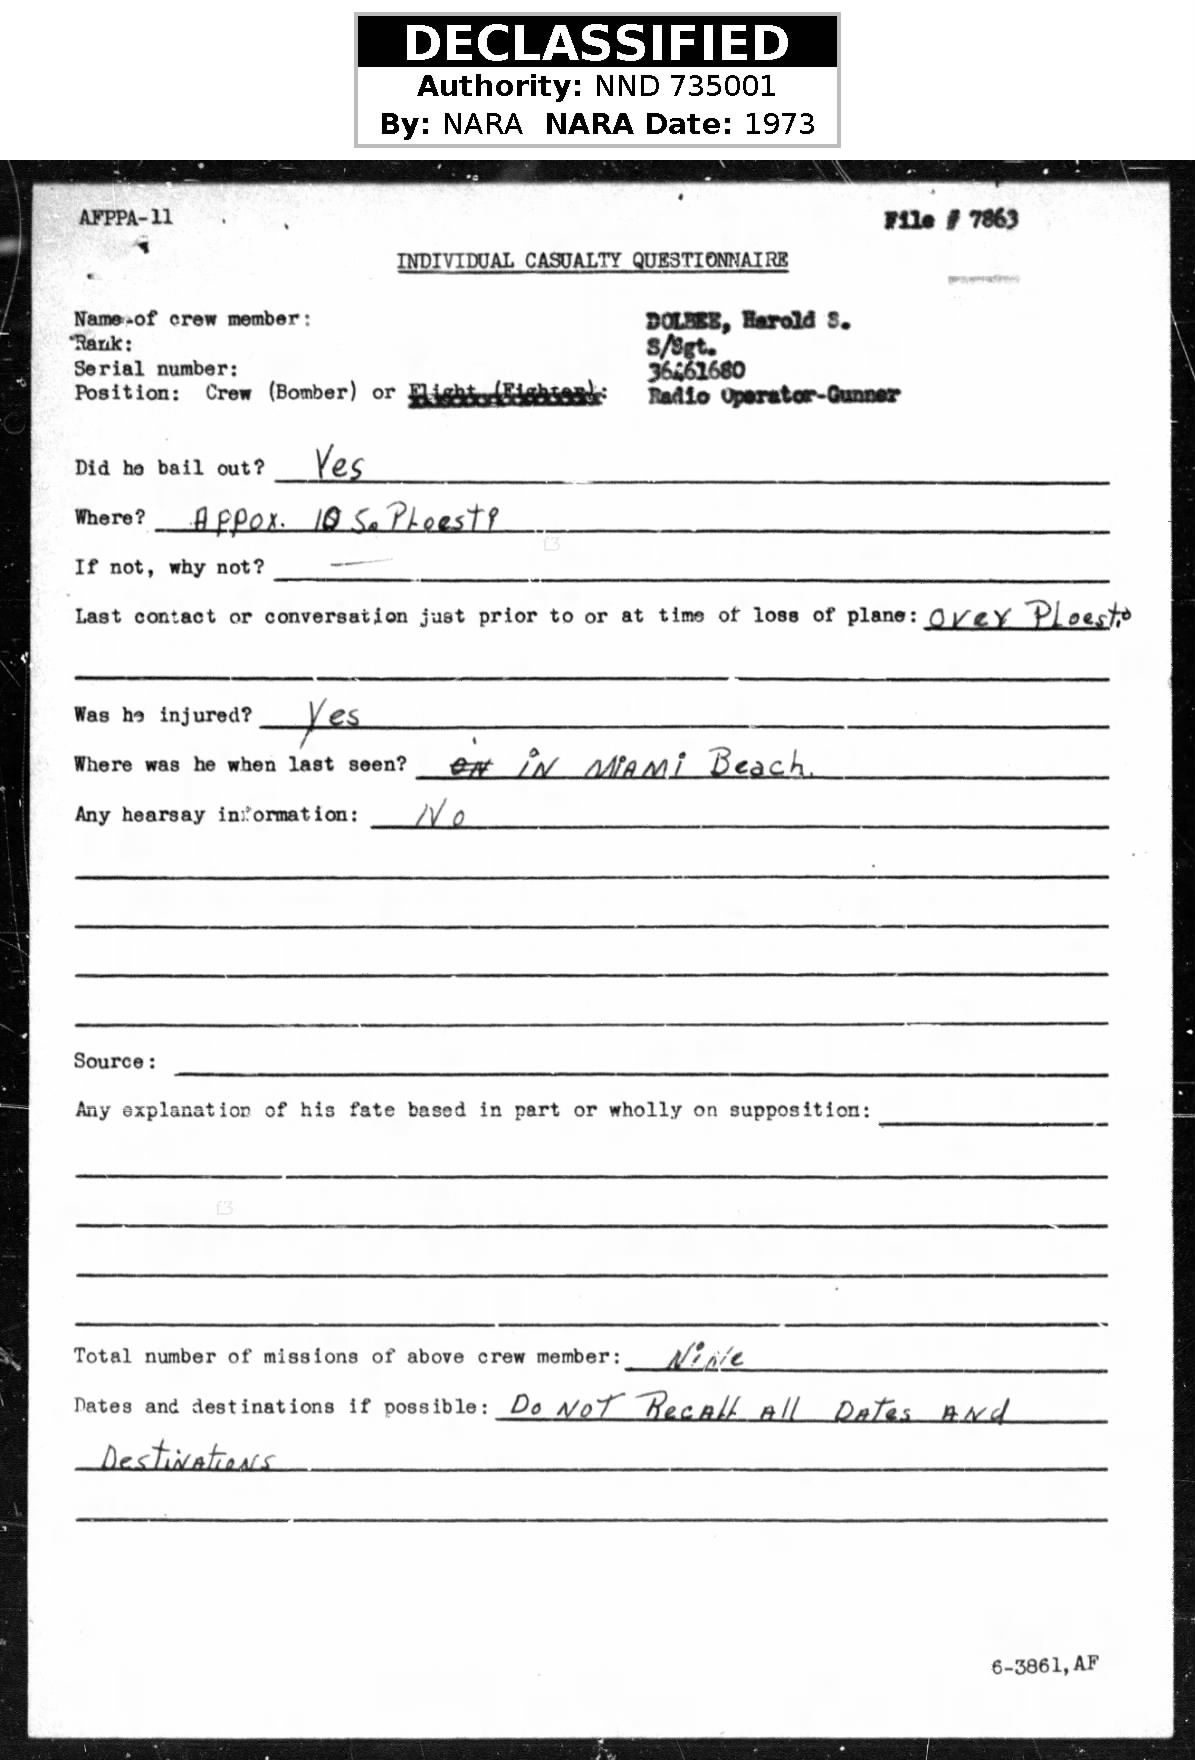 DECLASSIFIED
Authority: NND 735001
By: NARA NARA Date: 1973
AFPPA-11 File # 7863
INDIVIDUAL CASUALTY QUESTIONNAIRE
Name of crew member: DOLBEE, Harold S.
Rank: S/Sgt.
Serial number: 36461680
Position: Crew (Bomber) or Flight (Fighter): Radio Operator-Gunner
Did he bail out? Yes
Where? Appox. 10 So Ploesti
If not, why not? —
Last contact or conversation just prior to or at time of loss of plane: over Ploesti
Was he injured? Yes
Where was he when last seen? on iN MiAMi Beach.
Any hearsay information: No
Source:
Any explanation of his fate based in part or wholly on supposition:
Total number of missions of above crew member: Nine
Dates and destinations if possible: Do NOT RecAll All DATes ANd
DestiNATioNS
6-3861,AF